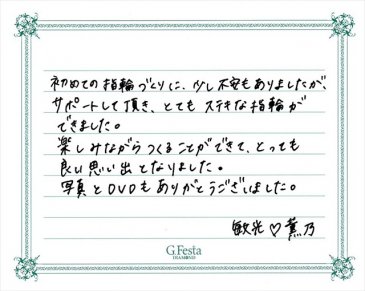 初めての指輪づくりに、少し不安もありましたが、
サポートして頂き、とても ステキな指輪が
できました。
楽しみながらつくることができて、とっても
良い思い出となりました。
写真とDVDもありがとうございました。
敏光♡薫乃
G.Festa
TRAMOND